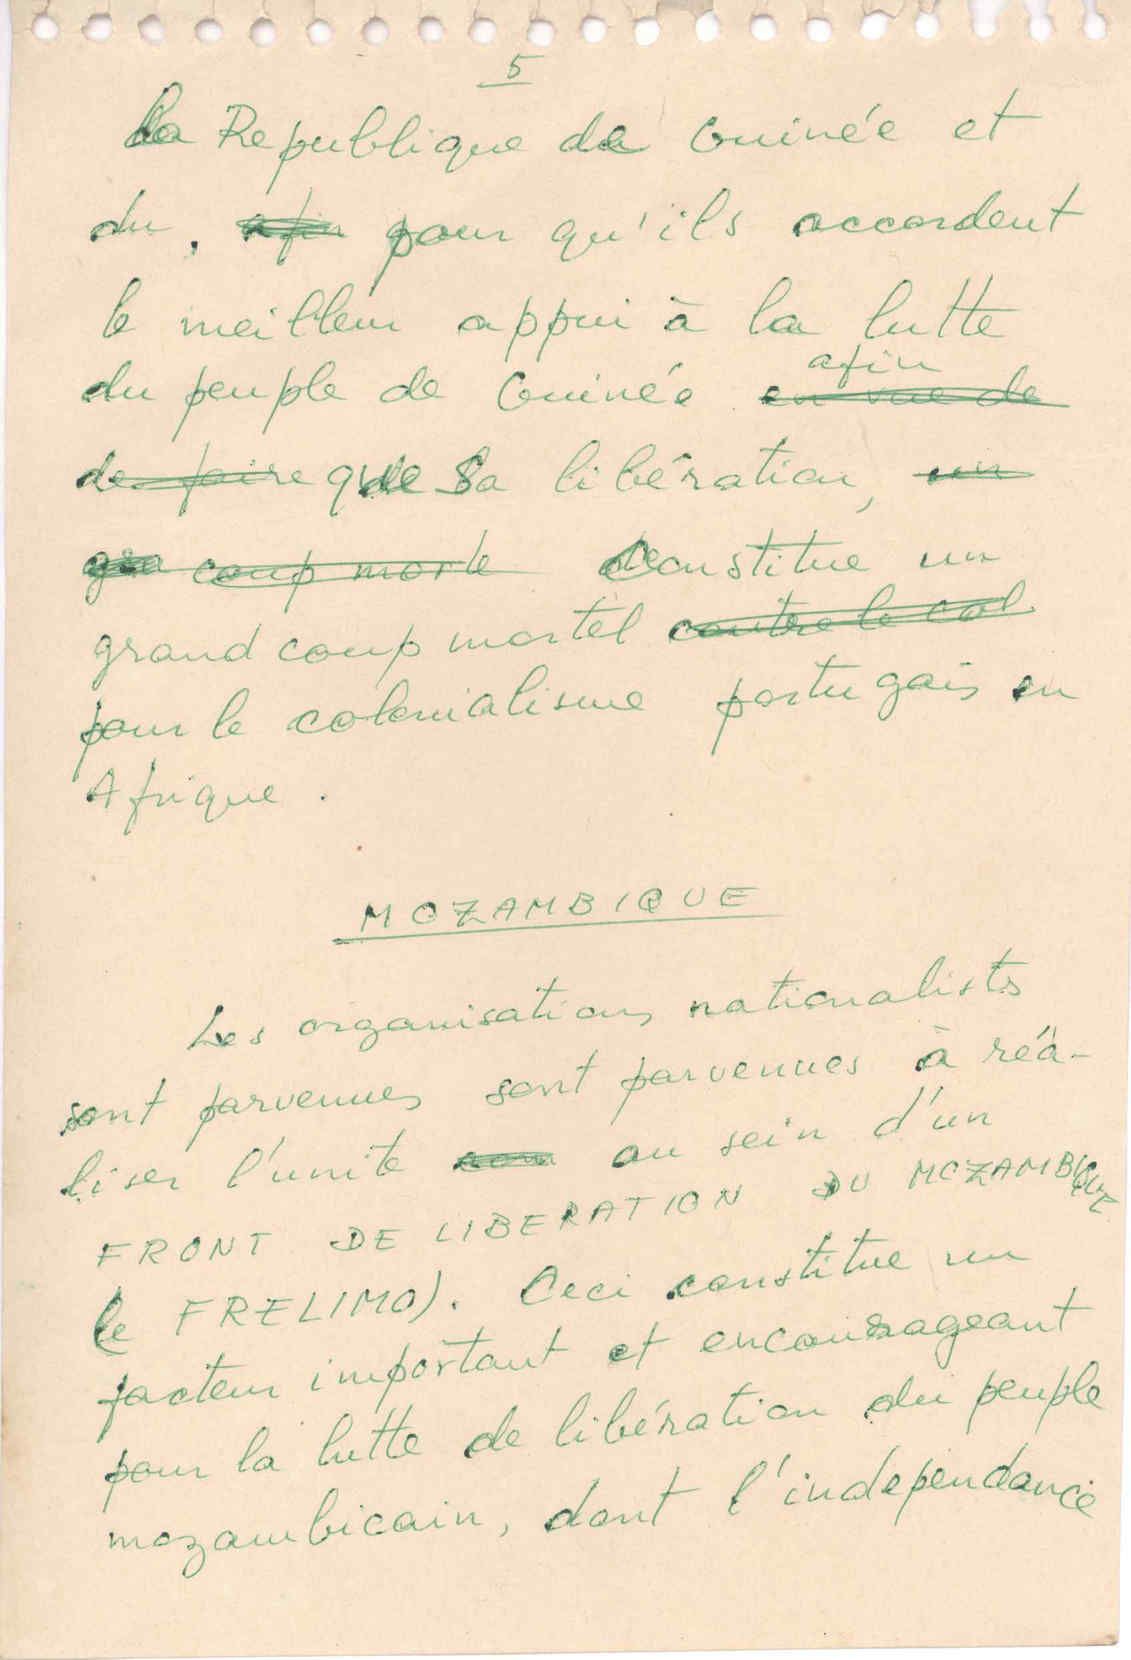 5
la Republique de Guinée et
du, afin pour qu'ils accordent
le meilleur appui à la lutte
afin
du peuple de Guinée en vue de
de faire que sa libération, un
coup morte constitue un
grand coup mortel contre le col
pour le colonialisme portugais en
Afrique.
MOZAMBIQUE
Les organisations nationalists
sont parvenues sont parvenues à réa-
liser l'unite au sein d'un
FRONT DE LIBERATION DU MOZAMBIQUE
(le FRELIMO). Ceci constitue un
facteur important et encourageant
pour la lutte de libération du peuple
mozambicain, dont l'independance